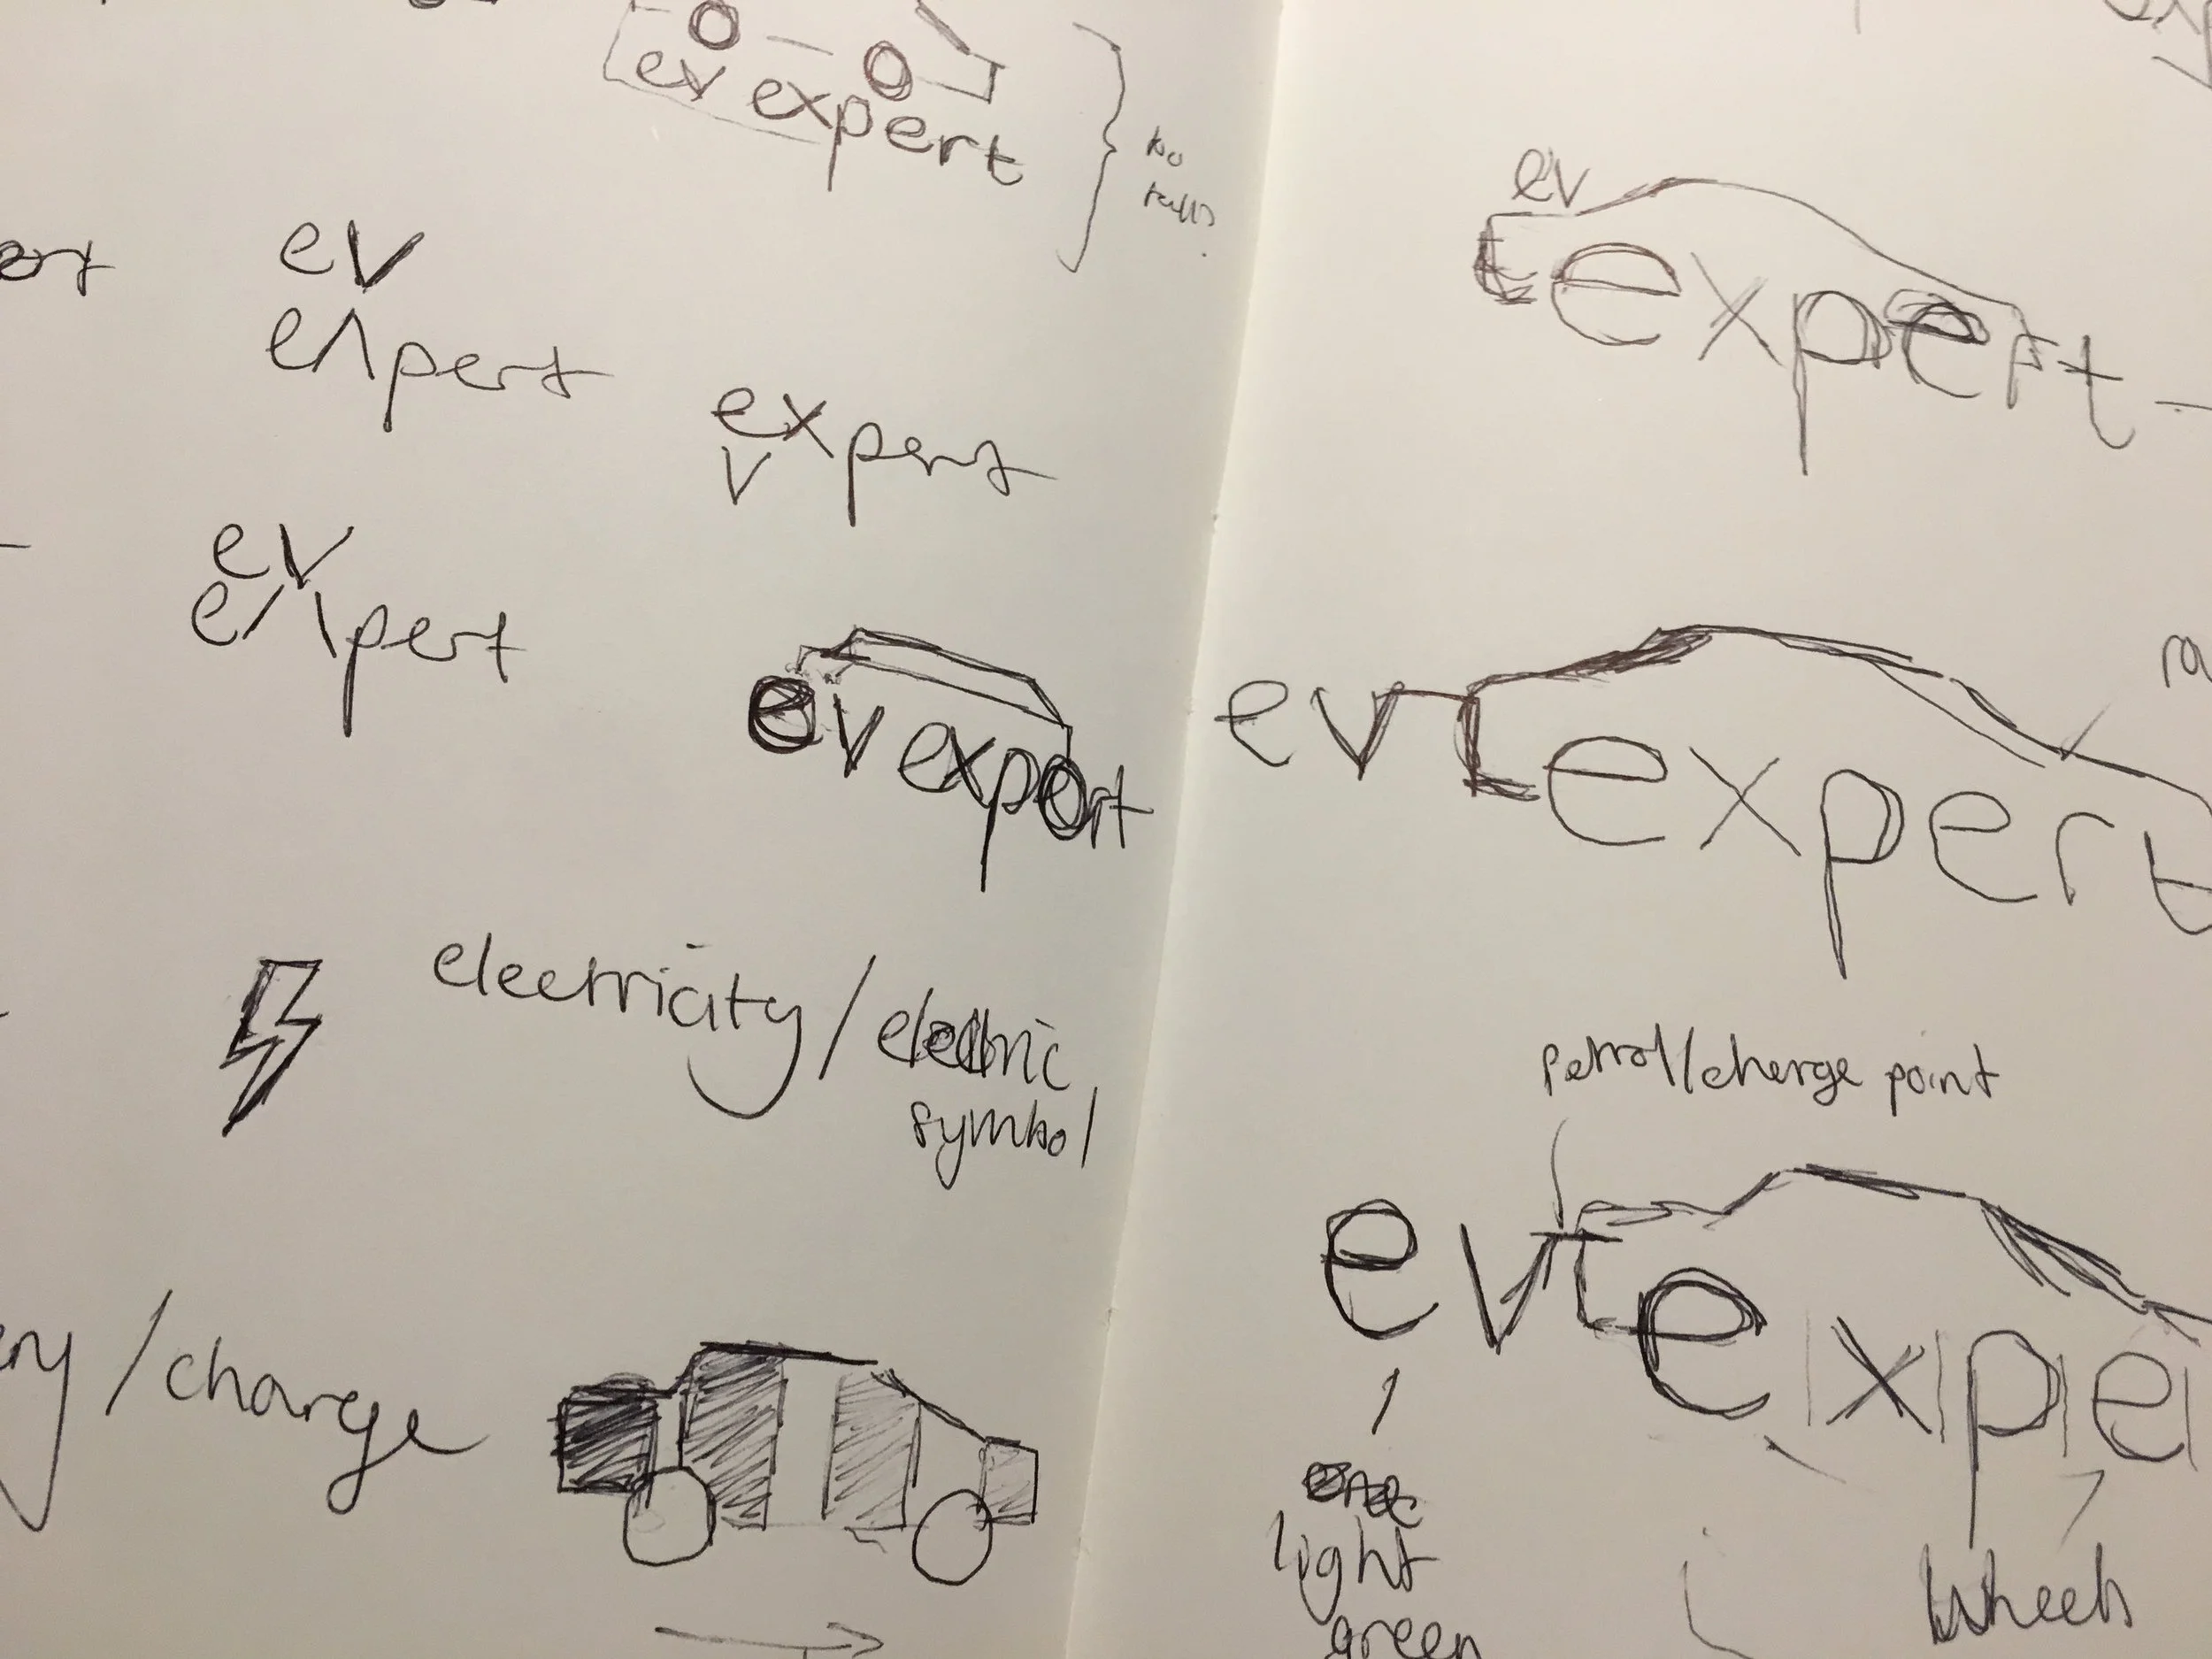 ev expert
ev
expert
expert
v
ev
expert
ev expert
electricity/electric
symbol
/charge
ev
expert
ev expert
petrol/charge point
ev expe
light
green
wheels